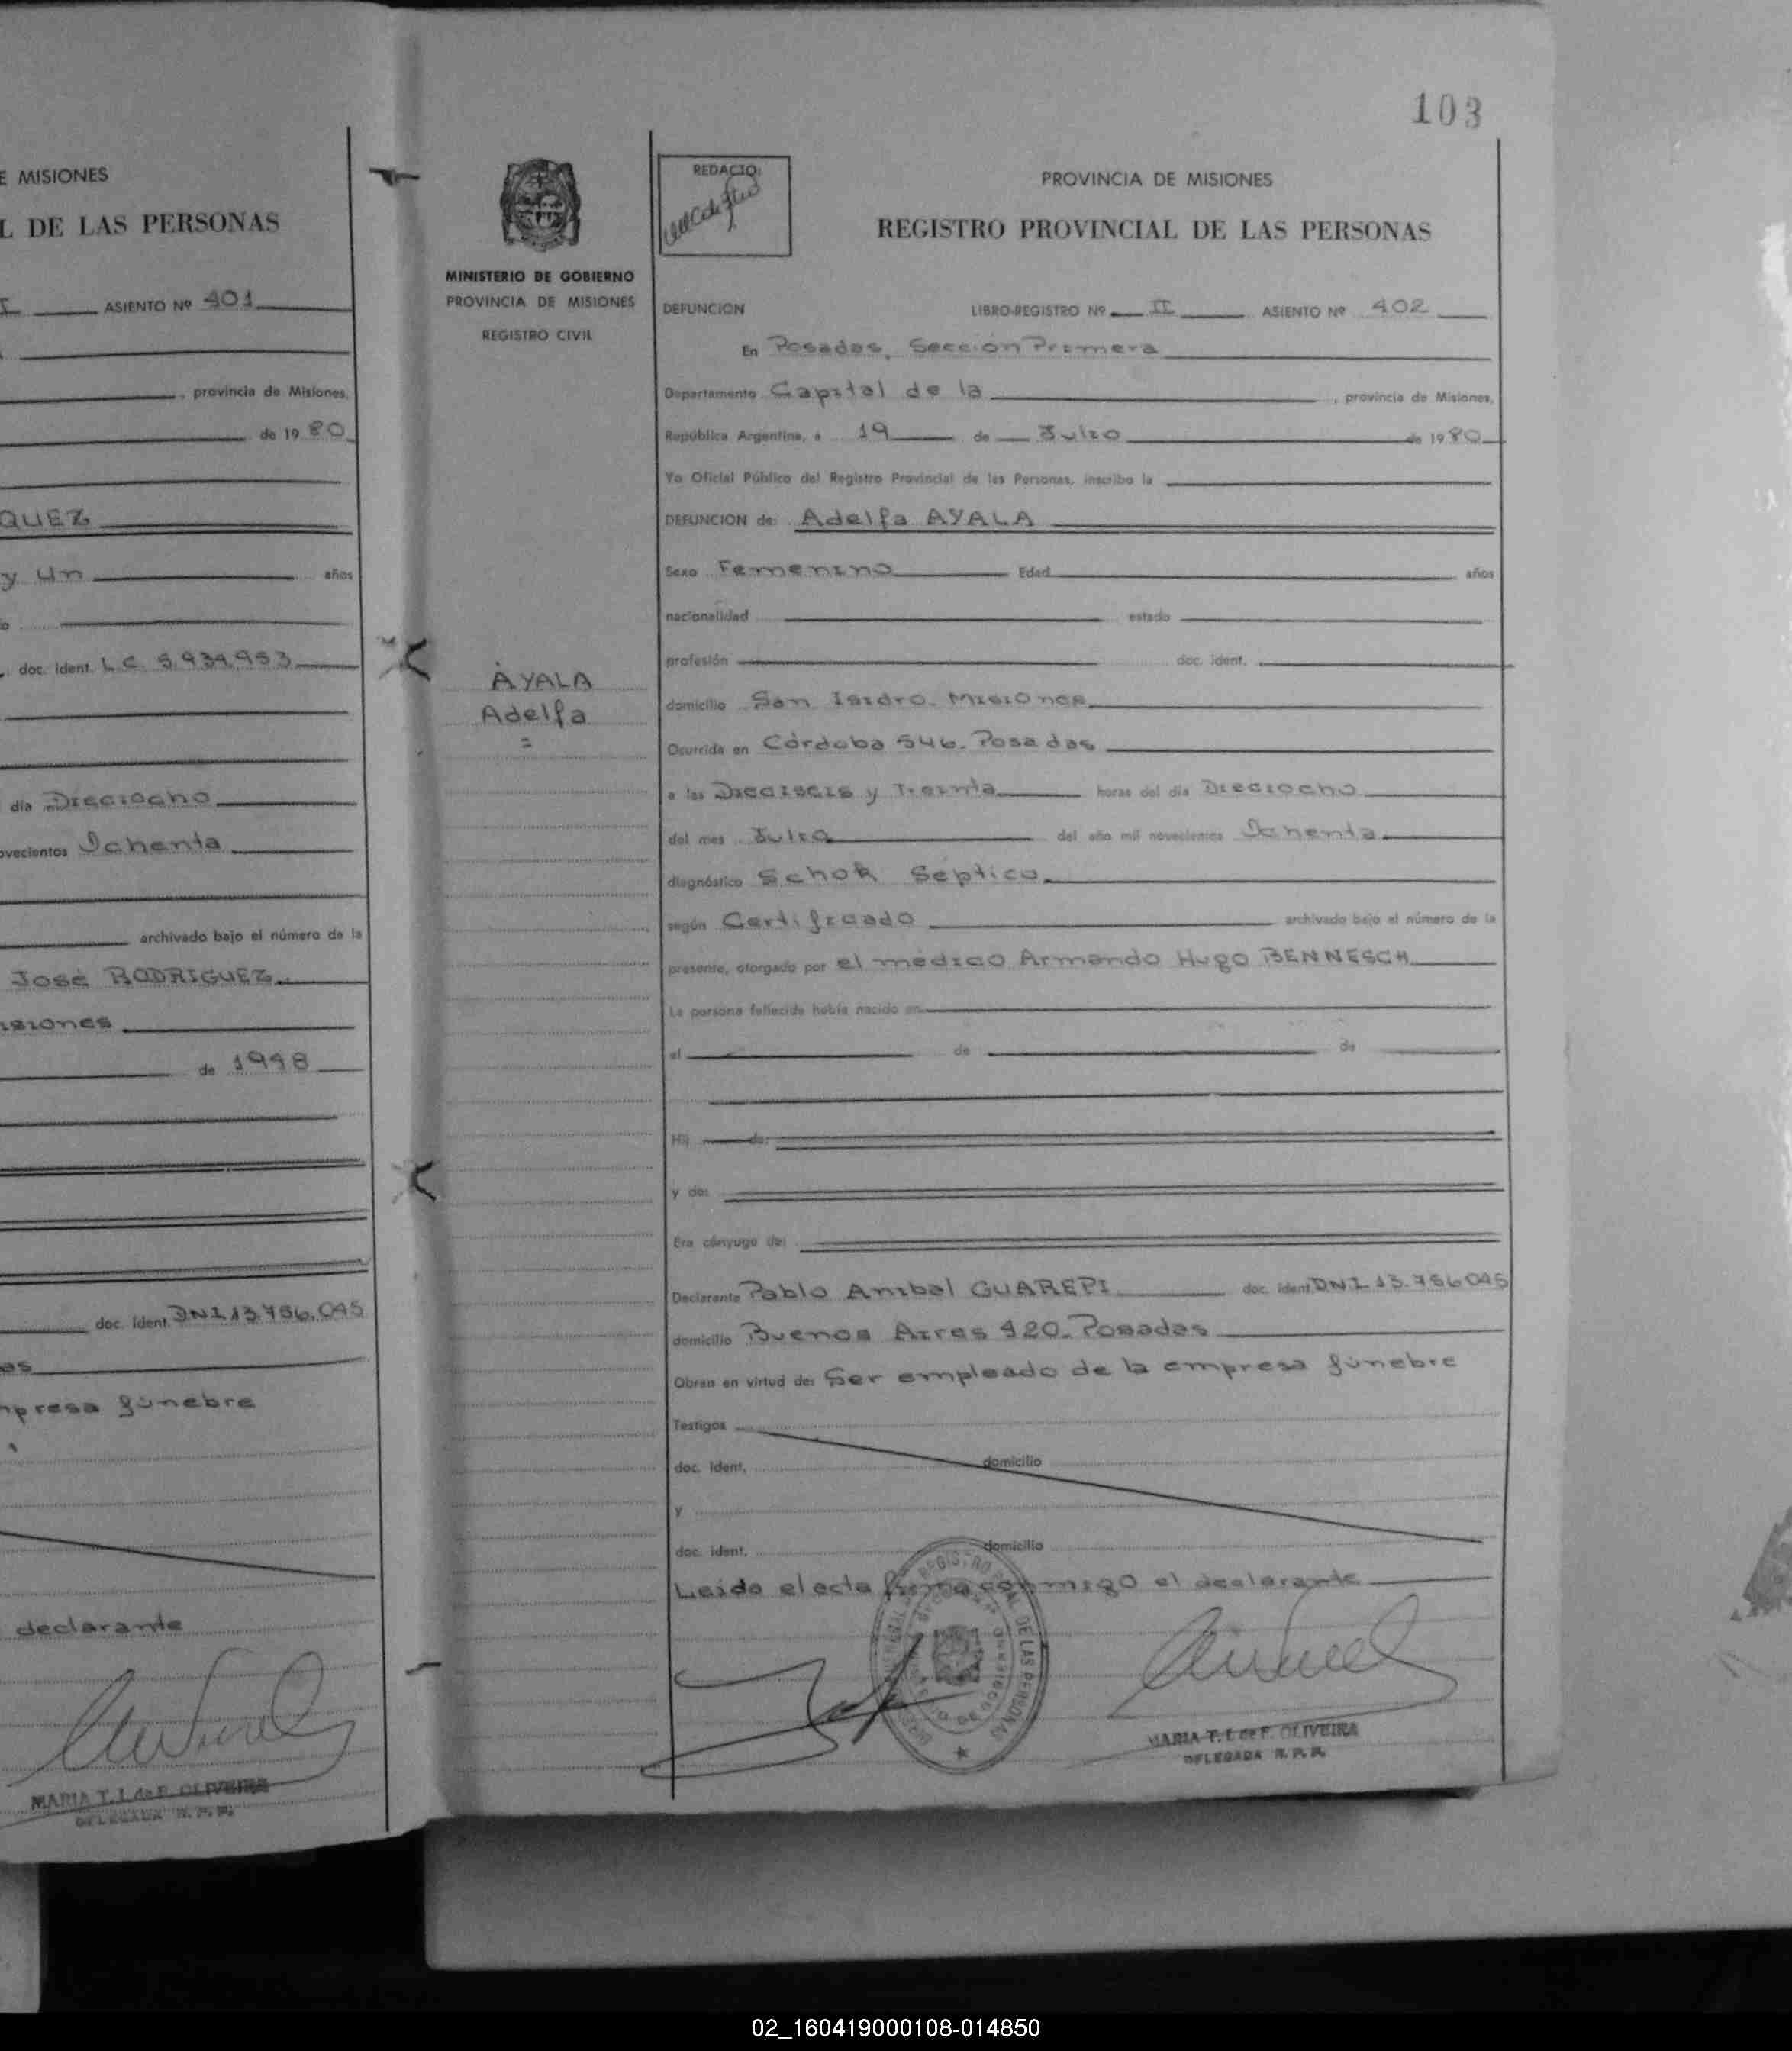 E MISIONES
L DE LAS PERSONAS
I ASIENTO Nº 401
, provincia de Misiones,
de 1980
QUEZ
y Un años
doc. ident. L.C. 5.939.953
día Dieciocho
ovecientos Ochenta
archivado bajo el número de la
José RODRIGUEZ
isiones
de 1948
doc. ident. DNI 13.756.045
as
mpresa fúnebre
declarante
MARIA T. I. de F. OLIVEIRA
DELEGADA R. P. P.
103
MINISTERIO DE GOBIERNO
PROVINCIA DE MISIONES
REGISTRO CIVIL
AYALA
Adelfa
=
REDACTO:
PROVINCIA DE MISIONES
REGISTRO PROVINCIAL DE LAS PERSONAS
DEFUNCION LIBRO-REGISTRO Nº II ASIENTO Nº 402
En Posadas, Sección Primera
Departamento Capital de la , provincia de Misiones,
República Argentina, a 19 de Julio de 1980
Yo Oficial Público del Registro Provincial de las Personas, inscribo la
DEFUNCION de: Adelfa AYALA
Sexo Femenino Edad años
nacionalidad estado
profesión doc. ident.
domicilio San Isidro. Misiones
Ocurrida en Córdoba 546. Posadas
a las Dieciseis y Treinta horas del día Dieciocho
del mes Julio del año mil novecientos Ochenta
diagnóstico Schok Séptico
según Certificado archivado bajo el número de la
presente, otorgado por el médico Armando Hugo BENNESCH
La persona fallecida había nacido en
el de de
Hij de:
y de:
Era cónyuge de:
Declarante Pablo Anibal GUAREPI doc. ident. DNI 13.756.045
domicilio Buenos Aires 920. Posadas
Obran en virtud de: Ser empleado de la empresa fúnebre
Testigos
doc. ident. domicilio
y
doc. ident. domicilio
Leída el acta firma conmigo el declarante
MARIA T. I. de F. OLIVEIRA
DELEGADA R. P. P.
02_160419000108-014850